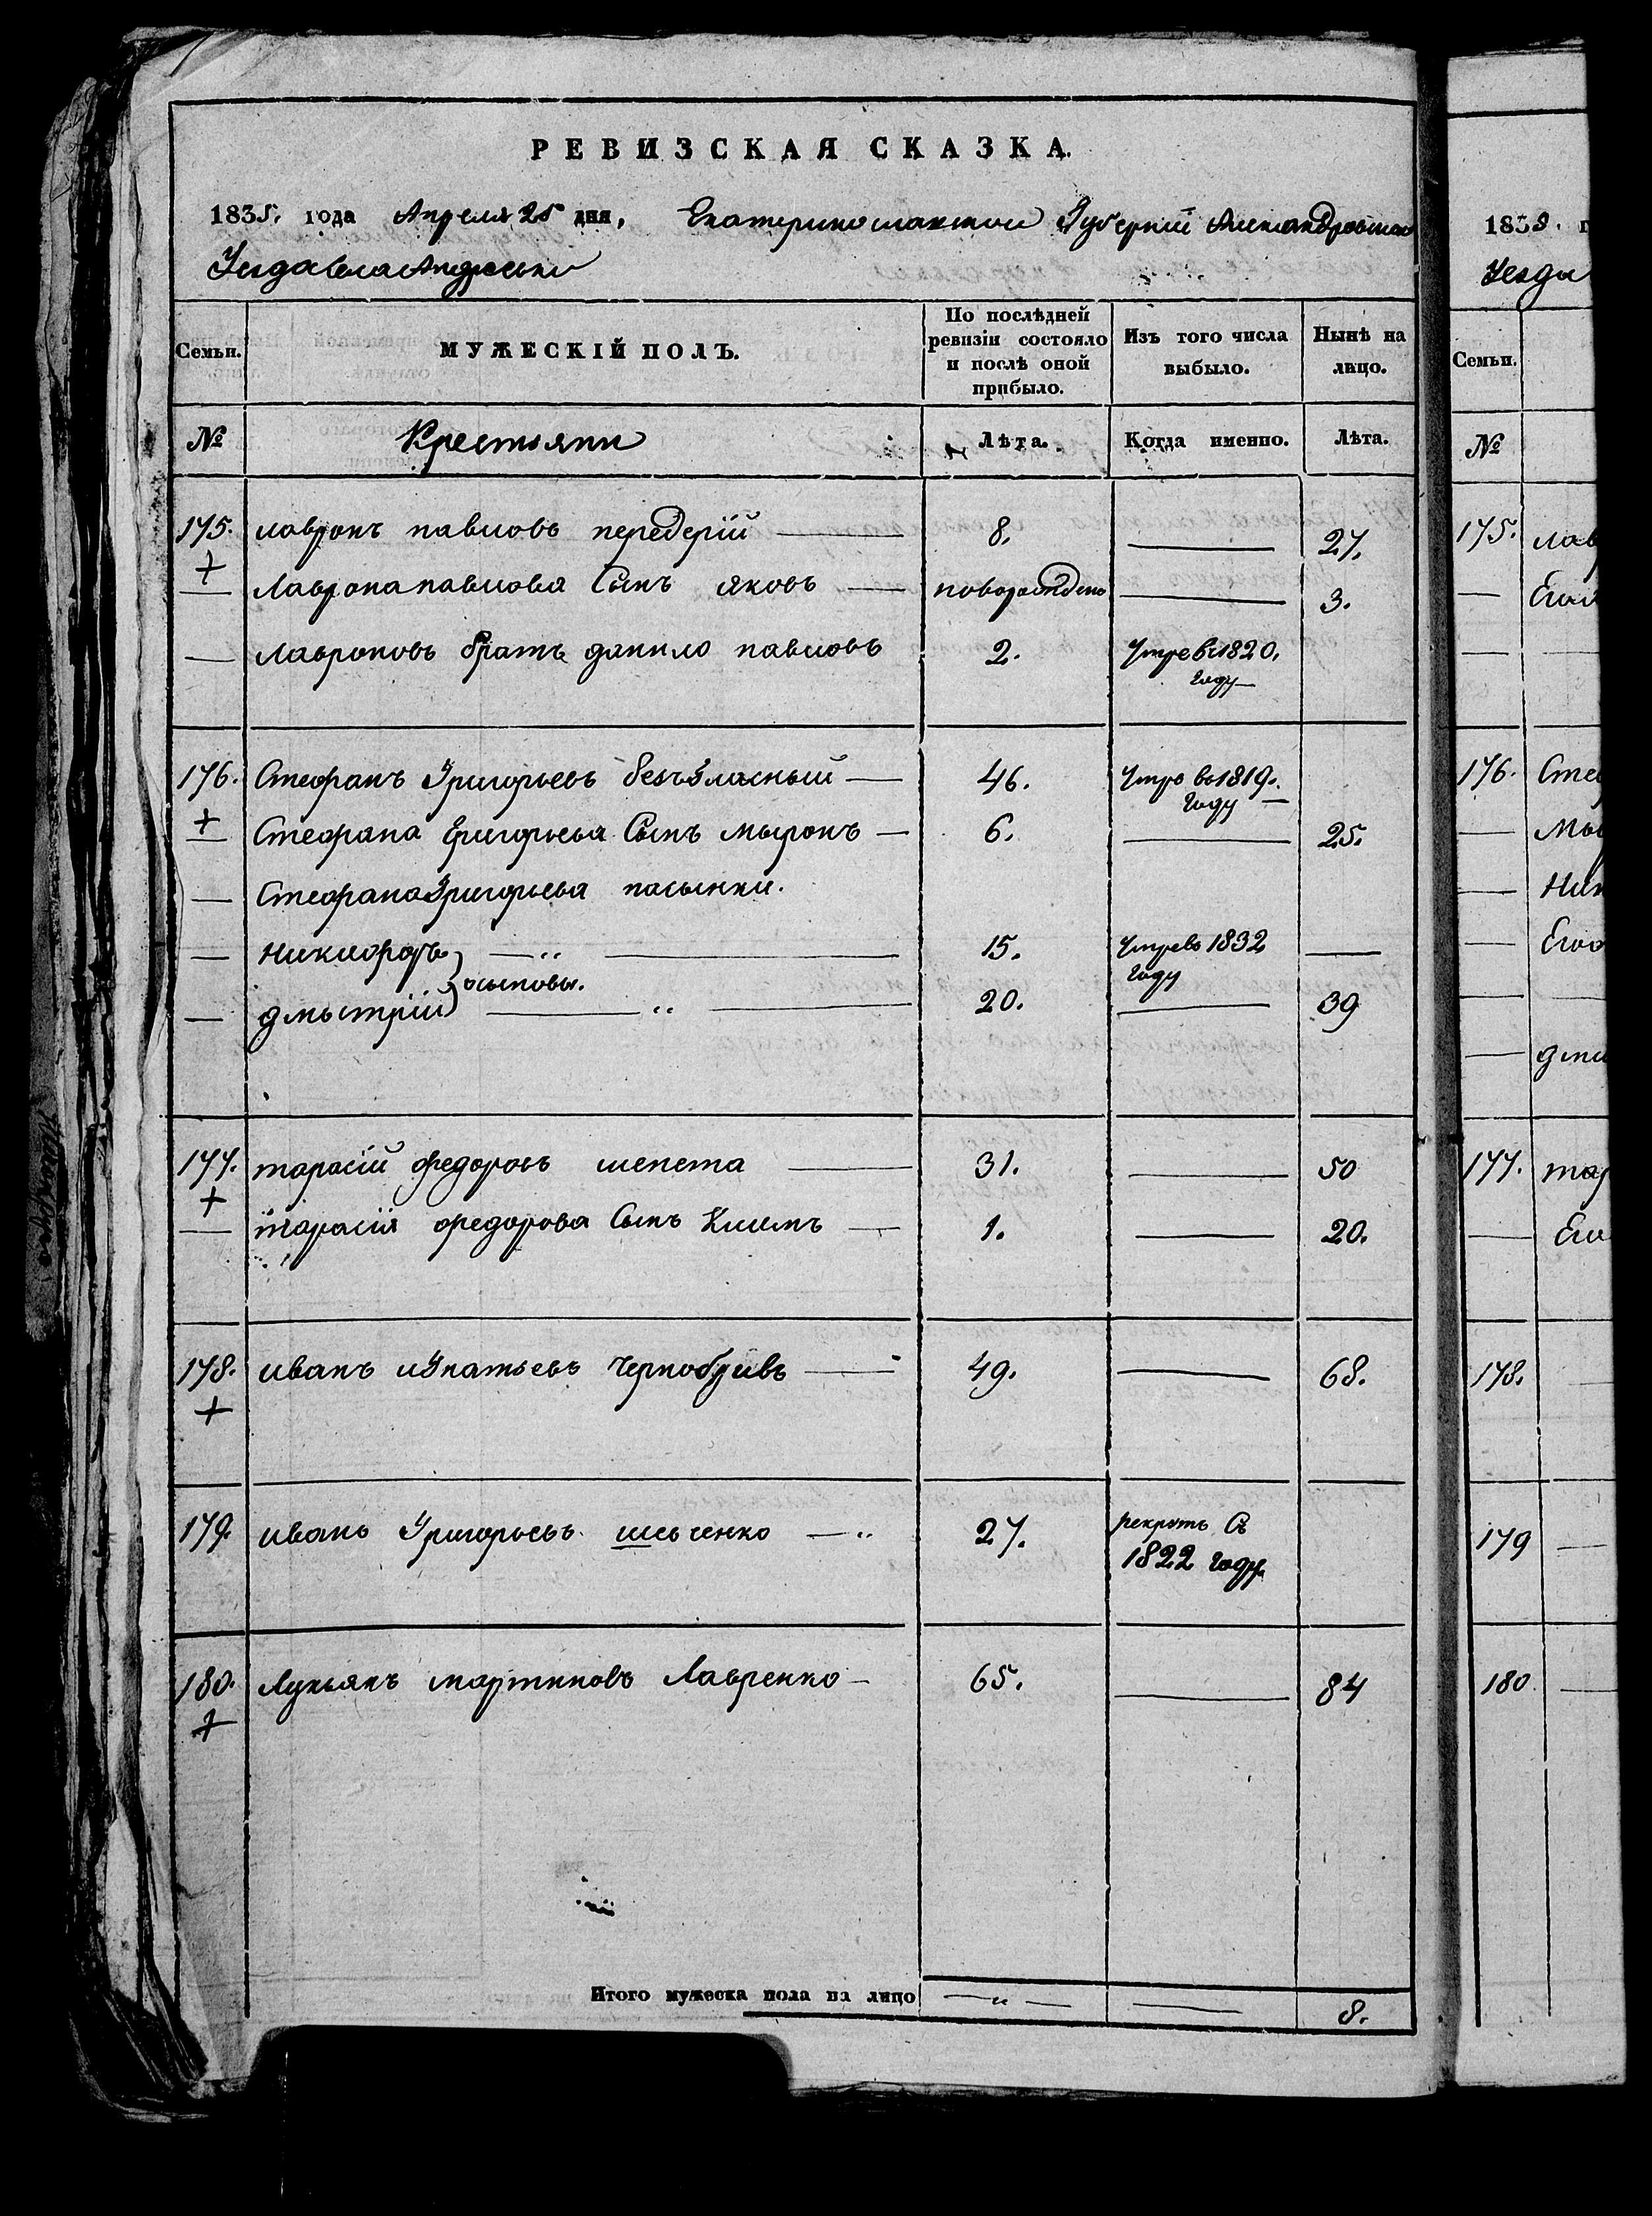 РЕВИЗСКАЯ СКАЗКА.
1835. года Апреля 25 дня, Екатеринославской Губернiи Александровскаго
Уезда Села Андреевки
Семьи.
МУЖЕСКІЙ ПОЛЪ.
По послѣдней ревизіи состояло и послѣ оной прибыло.
Изъ того числа выбыло.
Нынѣ на лицо.
№ Крестьяни Лѣта. Когда именно. Лѣта.
175. лавронъ павловъ передерій — 8. — 27.
+
— Лаврона павлова Сынъ яковъ — новорожденъ — 3.
— Лавроновъ братъ данило павловъ 2. Умре въ 1820. году —
176. Стефанъ Григорьевъ безъгласный — 46. Умре въ 1819. году —
+
— Стефана Григорьева Сынъ мыронъ — 6. — 25.
— Стефана Григорьева пасынки.
— Никифоръ — 15. Умре въ 1832 году —
осиповы.
— дмытрій — 20. — 39
177. тарасій федоровъ шепета — 31. — 50
+
— тарасія федорова Сынъ Климъ — 1. — 20.
178. иванъ игнатьевъ Чернобривъ — 49. — 68.
+
179. иванъ Григорьевъ шевченко — 27. рекрутъ въ 1822 году.
180. Лукьянъ мартиновъ Лавренко — 65. — 84
+
Итого мужеска пола на лицо — — 8.
1835. г
Уезда
Семьи.
№
175. лав
— Его
—
176. Сте
— Мы
— Ник
— Его
—
— дми
177. тар
— Его
178. —
179 —
180. —